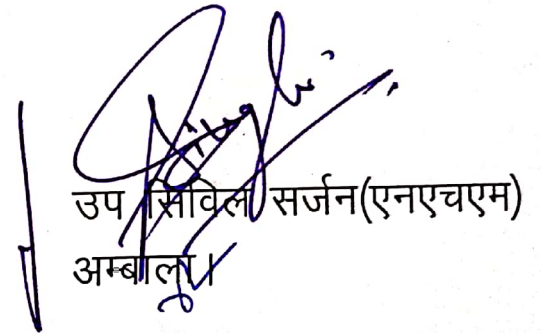 उप सिविल सर्जन(एनएचएम)
अम्बाला।